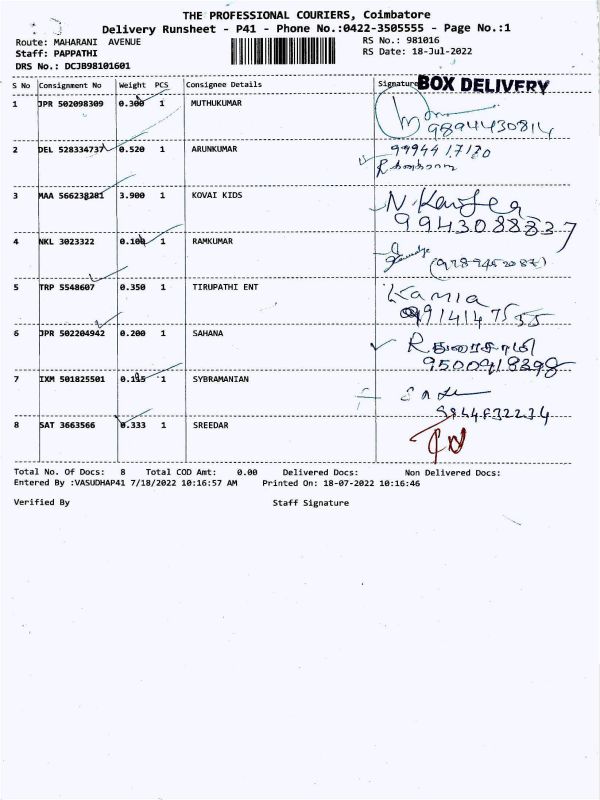 THE PROFESSIONAL COURIERS, Coimbatore
Delivery Runsheet - P41 - Phone No.:0422-3505555 - Page No.:1
Route: MAHARANI AVENUE RS No.: 981016
Staff: PAPPATHI RS Date: 18-Jul-2022
DRS No.: DCJB98101601
S No Consignment No Weight PCS Consignee Details Signature BOX DELIVERY
1 JPR 502098309 0.300 1 MUTHUKUMAR
9894430814
2 DEL 528334737 0.520 1 ARUNKUMAR 9994417120
3 MAA 566238281 3.900 1 KOVAI KIDS N.
9943088837
4 NKL 3023322 0.100 1 RAMKUMAR
5 TRP 5548607 0.350 1 TIRUPATHI ENT Kamla
914147555
6 JPR 502204942 0.200 1 SAHANA R துரைசாமி
9500918398
7 IXM 501825501 0.195 1 SYBRAMANIAN
8 SAT 3663566 0.333 1 SREEDAR
Total No. Of Docs: 8 Total COD Amt: 0.00 Delivered Docs: Non Delivered Docs:
Entered By :VASUDHAP41 7/18/2022 10:16:57 AM Printed On: 18-07-2022 10:16:46
Verified By Staff Signature